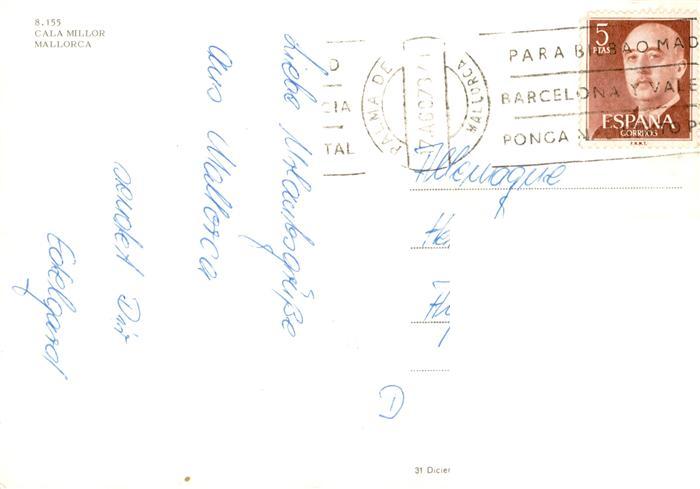 8.155
CALA MILLOR
MALLORCA
Liebe Urlaubsgrüße
aus Mallorca
sendet Dir
Edelgard
PALMA DE
MALLORCA
PARA BILBAO MAD
BARCELONA Y VALE
PONGA
CIA
TAL
5
PTAS
ESPAÑA
CORREOS
F.N.M.T.
Allemagne
He
31 Dicier